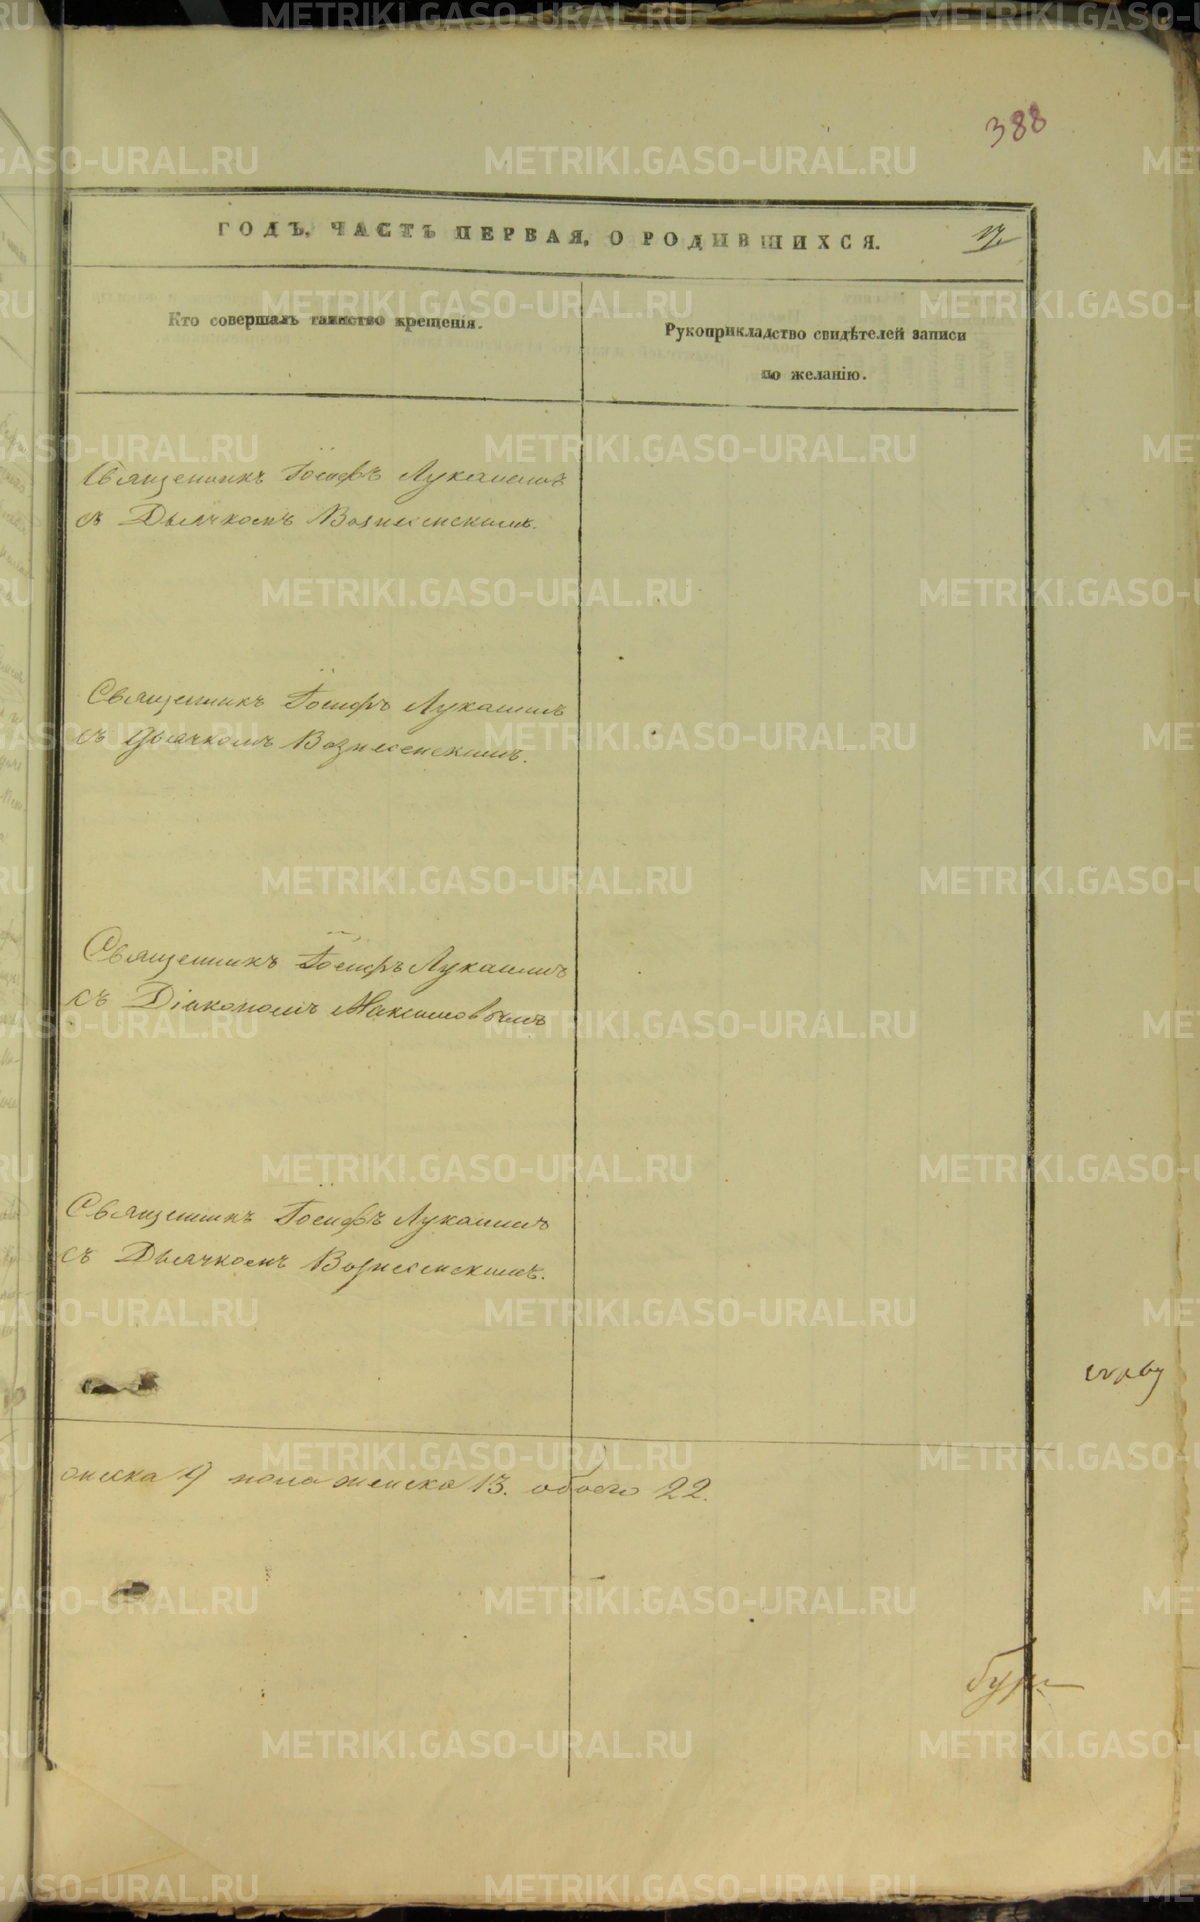 388
ГОДЪ, ЧАСТЬ ПЕРВАЯ, О РОДИВШИХСЯ.
Кто совершалъ таинство крещенія.
Рукоприкладство свидѣтелей записи
по желанію.
Священникъ Іосифъ Лукашинъ
съ Дьячкомъ Вознесенскимъ.
Священникъ Іосифъ Лукашинъ
съ дьячкомъ Вознесенскимъ.
Священникъ Іосифъ Лукашинъ
съ Діакономъ Максимовымъ
Священникъ Іосифъ Лукашинъ
съ Дьячкомъ Вознесенскимъ.
9 пола женска 13. обоего 22.
METRIKI.GASO-URAL.RU